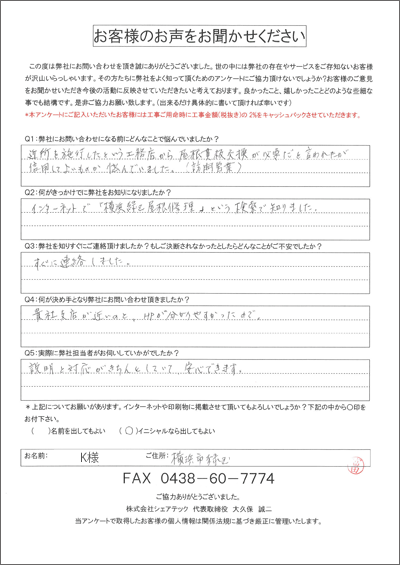 お客様のお声をお聞かせください
この度は弊社にお問い合わせを頂き誠にありがとうございました。世の中には弊社の存在やサービスをご存知ないお客様
が沢山いらっしゃいます。その方たちに弊社をよく知って頂くためのアンケートにご協力頂けないでしょうか?お客様のご意見
をお聞かせいただき今後の活動に反映させていただきたいと考えております。良かったこと、嬉しかったことどのような些細な
事でも結構です。是非ご協力お願い致します。(出来るだけ具体的に書いて頂ければ幸いです)
*本アンケートにご記入いただいたお客様には工事ご用命時に工事金額(税抜き)の2%をキャッシュバックさせていただきます。
Q1:弊社にお問い合わせになる前にどんなことで悩んでいましたか?
近所を施行したという工務店から屋根貫板交換が必要だと言われたが
信用してよいものか悩んでいました。(訪問営業)
Q2:何がきっかけでに弊社をお知りになりましたか?
インターネットで「横浜緑区屋根修理」という検索で知りました。
Q3:弊社を知りすぐにご連絡頂けましたか?もしご決断されなかったとしたらどんなことがご不安でしたか?
すぐに連絡しました。
Q4:何が決め手となり弊社にお問い合わせ頂きましたか?
貴社支店が近いのと、HPが分かりやすかったので。
Q5:実際に弊社担当者がお伺いしていかがでしたか?
説明と対応がきちんとしていて、安心できます。
*上記についてお願いがあります。インターネットや印刷物に掲載させて頂いてもよろしいでしょうか?下記の中から〇印を
お付け下さい。
( )名前を出してもよい (〇)イニシャルなら出してもよい
お名前: K様 ご住所: 横浜市緑区
FAX 0438-60-7774
ご協力ありがとうございました。
株式会社シェアテック 代表取締役 大久保 誠二
当アンケートで取得したお客様の個人情報は関係法規に基づき厳正に管理いたします。